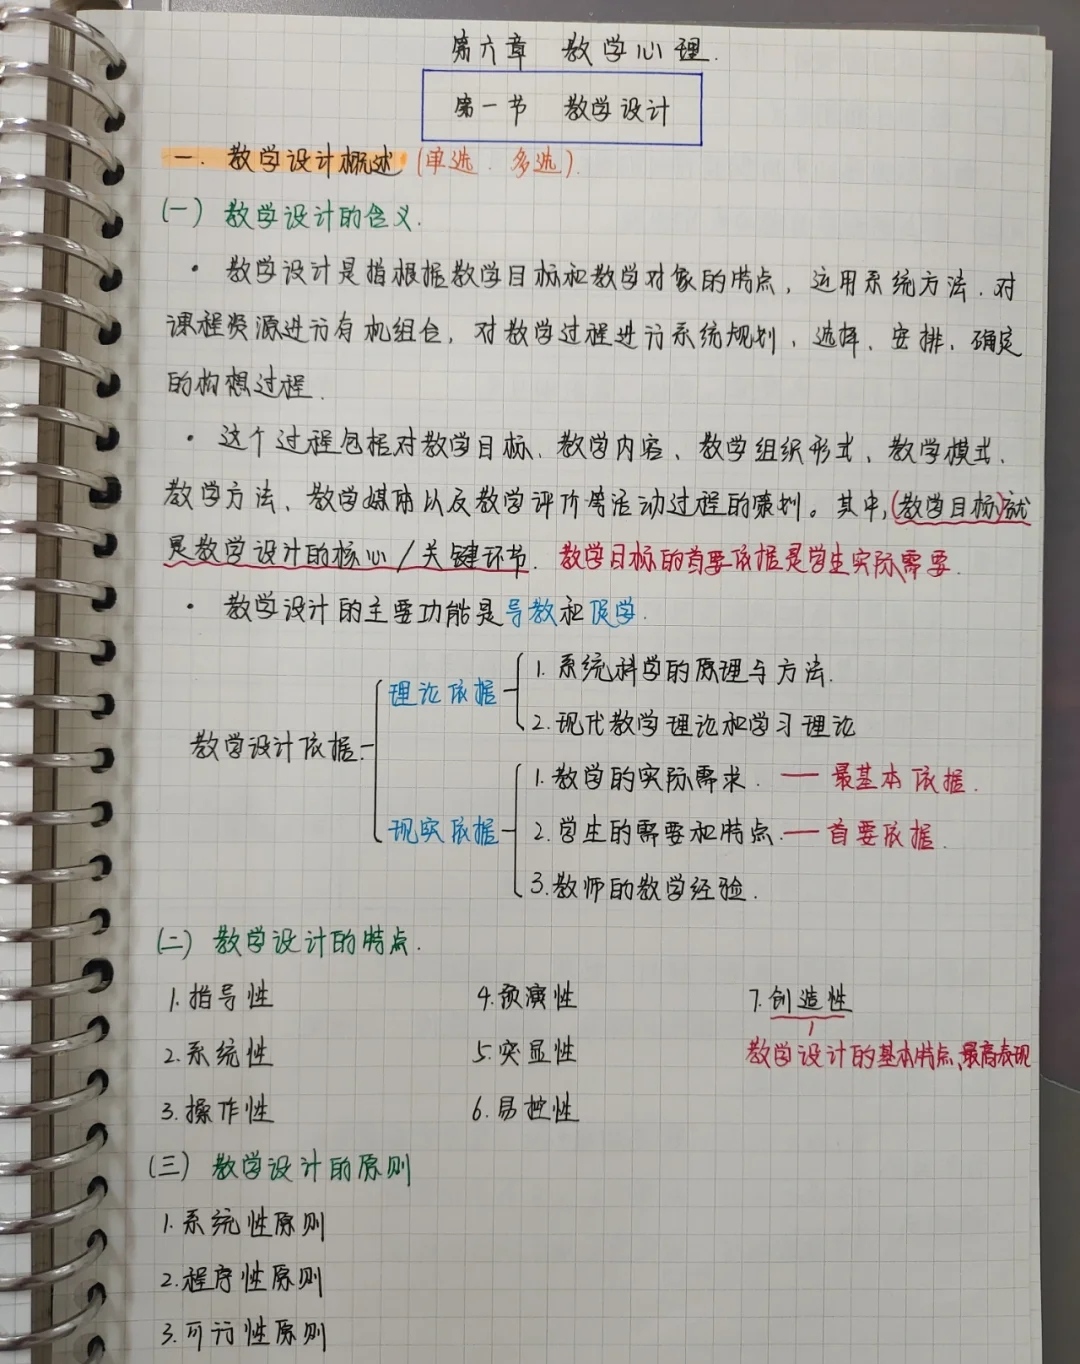 第六章 教学心理.
第一节 教学设计
一. 教学设计概述 (单选. 多选).
(一) 教学设计的含义.
· 教学设计是指根据教学目标和教学对象的特点, 运用系统方法. 对
课程资源进行有机组合, 对教学过程进行系统规划、选择、安排、确定
的构想过程.
· 这个过程包括对教学目标、教学内容、教学组织形式、教学模式、
教学方法、教学媒体以及教学评价等活动过程的策划。其中,(教学目标)就
是教学设计的核心/关键环节. 教学目标的首要依据是学生实际需要.
· 教学设计的主要功能是导教和促学.
教学设计依据.
理论依据
1. 系统科学的原理与方法.
2. 现代教学理论和学习理论
现实依据
1. 教学的实际需求. — 最基本依据.
2. 学生的需要和特点. — 首要依据.
3. 教师的教学经验.
(二) 教学设计的特点.
1. 指导性 4. 预演性 7. 创造性
2. 系统性 5. 突显性 教学设计的基本特点、最高表现
3. 操作性 6. 易控性
(三) 教学设计的原则
1. 系统性原则
2. 程序性原则
3. 可行性原则